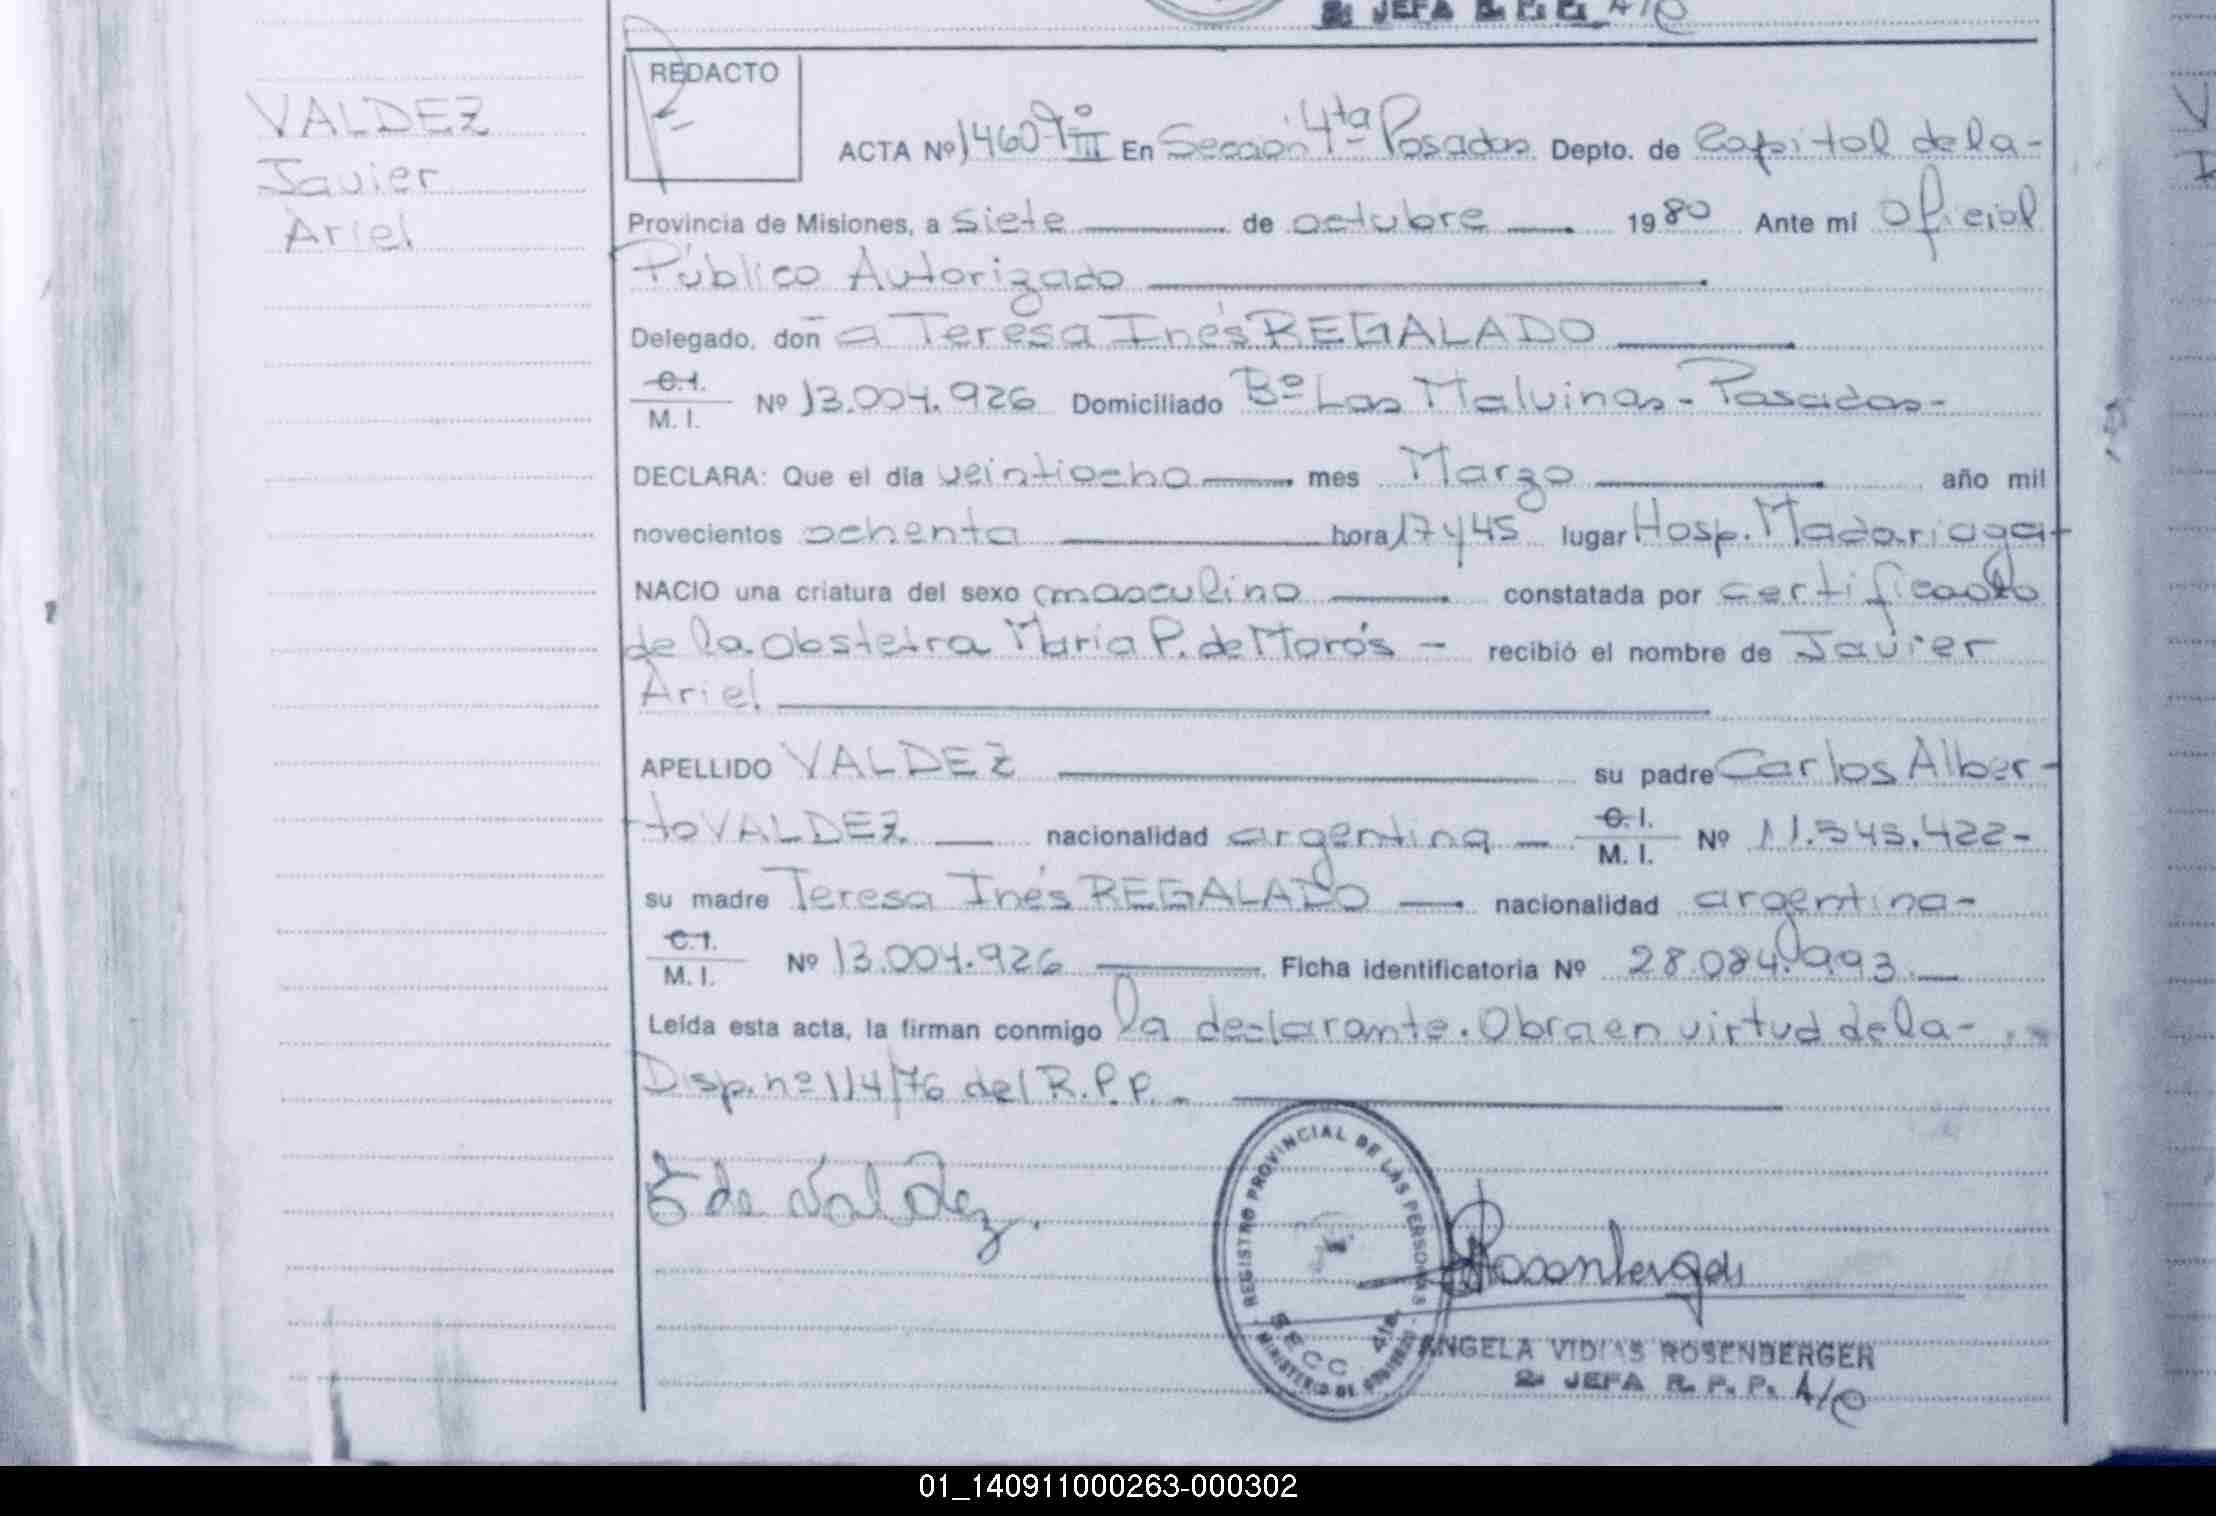 2: JEFA R. P. P. A/C
REDACTO
VALDEZ
Javier
Ariel
ACTA Nº 1460 Tº III En Sección 4ta Posadas Depto. de Capital de la-
Provincia de Misiones, a siete de octubre 1980 Ante mi Oficial
Público Autorizado
Delegado, don a Teresa Inés REGALADO
C.I.
M. I. Nº 13.004.926 Domiciliado Bº Las Malvinas - Posadas-
DECLARA: Que el día veintiocho mes Marzo año mil
novecientos ochenta hora 17 y 45 lugar Hosp. Madariaga-
NACIO una criatura del sexo masculino constatada por certificado
de la Obstetra María P. de Morós - recibió el nombre de Javier
Ariel
APELLIDO VALDEZ su padre Carlos Alber-
to VALDEZ nacionalidad argentina C.I.
M. I. Nº 11.545.422-
su madre Teresa Inés REGALADO nacionalidad argentina-
C.I.
M. I. Nº 13.004.926 Ficha identificatoria Nº 28.084.993
Leída esta acta, la firman conmigo la declarante. Obra en virtud de la-
Disp. nº 114/76 del R.P.P.-
de Valdez.
REGISTRO PROVINCIAL DE LAS PERSONAS
SECC 4ta.
MINISTERIO DE GOBIERNO
Rosenberger
ANGELA VIDIAS ROSENBERGER
2: JEFA R. P. P. A/C
01_140911000263-000302